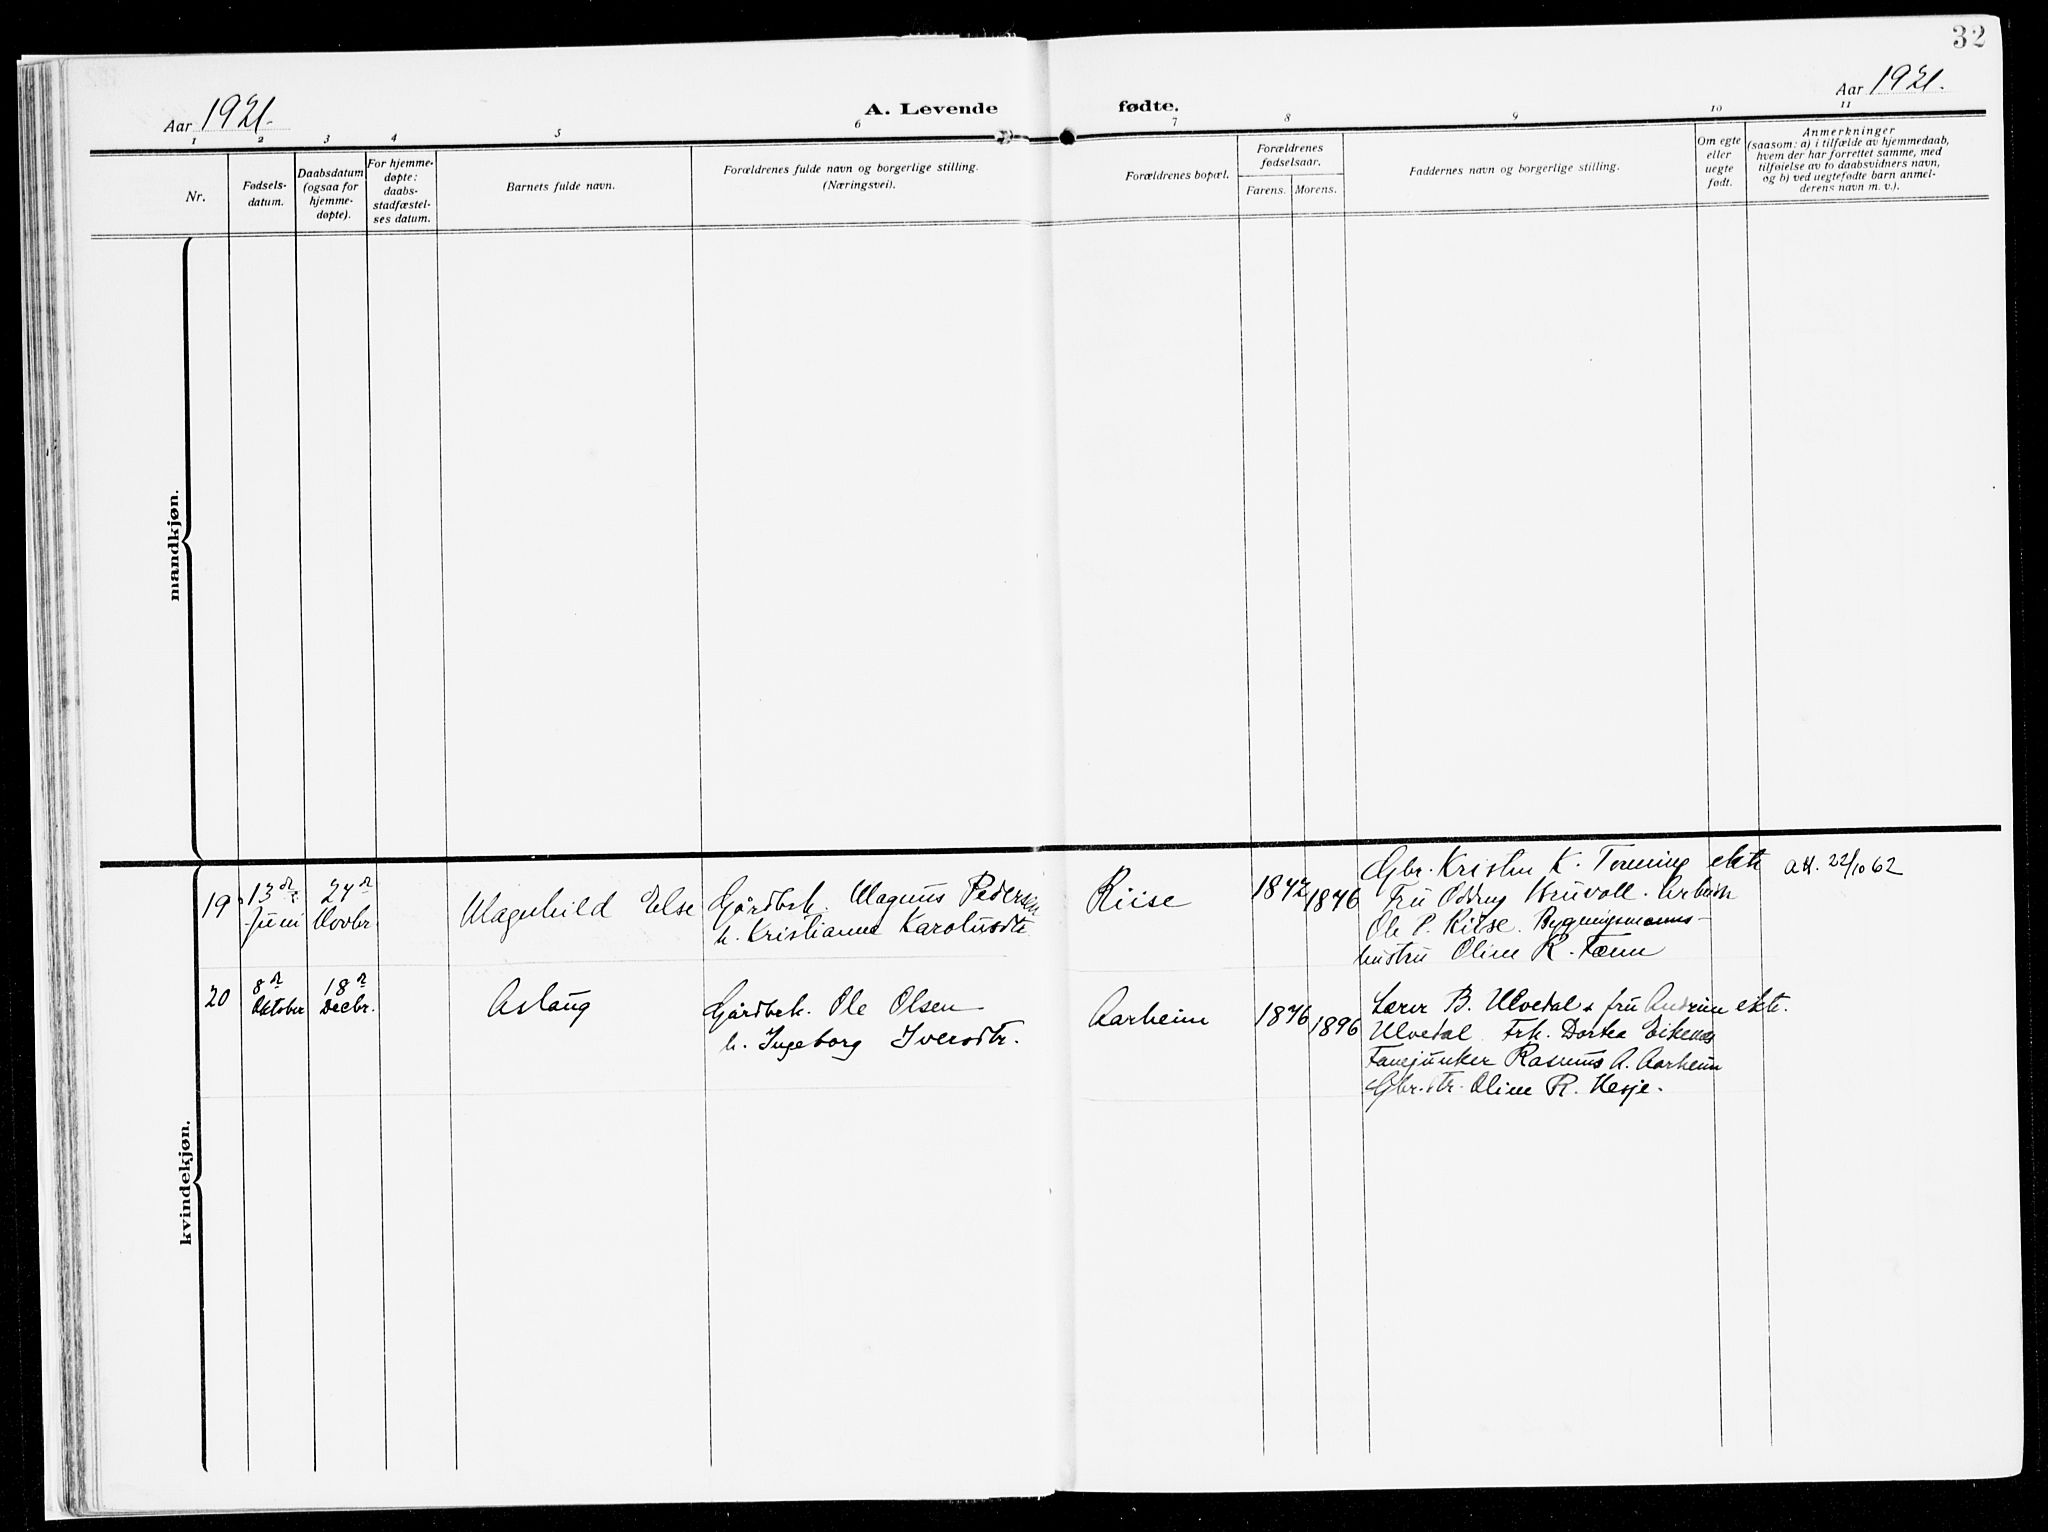 32
Aar 1921.
A. Levende fødte.
Aar 1921.
1 2 3 4 5 6 7 8 9 10 11
Nr.
Fødsels-
datum.
Daabsdatum
(ogsaa for
hjemme-
døpte).
For hjemme-
døpte:
daabs-
stadfæstel-
ses datum.
Barnets fulde navn.
Forældrenes fulde navn og borgerlige stilling.
(Næringsvei).
Forældrenes bopæl.
Forældrenes
fødselsaar.
Farens. Morens.
Faddernes navn og borgerlige stilling.
Om egte
eller
uegte
født.
Anmerkninger
(saasom: a) i tilfælde av hjemmedaab,
hvem der har forrettet samme, med
tilføielse av to daabsvidners navn,
og b) ved uegtefødte barn anmel-
derens navn m. v.).
mandkjøn.
kvindekjøn.
19
13de
Juni
24de
Novbr.
Magnhild Else
Gårdbrk. Magnus Pedersen
h. Kristianne Karolusdtr
Riise
1872
1876
Gbr. Kristen K.
Fru Oddny
Ole P. Riise. Bygningsmanns-
hustru Oline R.
ekte
att. 22/10 62
20
8de
Oktober
18de
Decbr.
Aslaug
Gårdbrk. Ole Olsen
h. Ingeborg Iversdtr.
Aarheim
1876
1896
Lærer B. Ulvedal & fru
Ulvedal. Frk. Dortea Eikenes
Fanejunker Rasmus A. Aarheim
Gbr.dtr. Oline R. Hesje.
ekte.